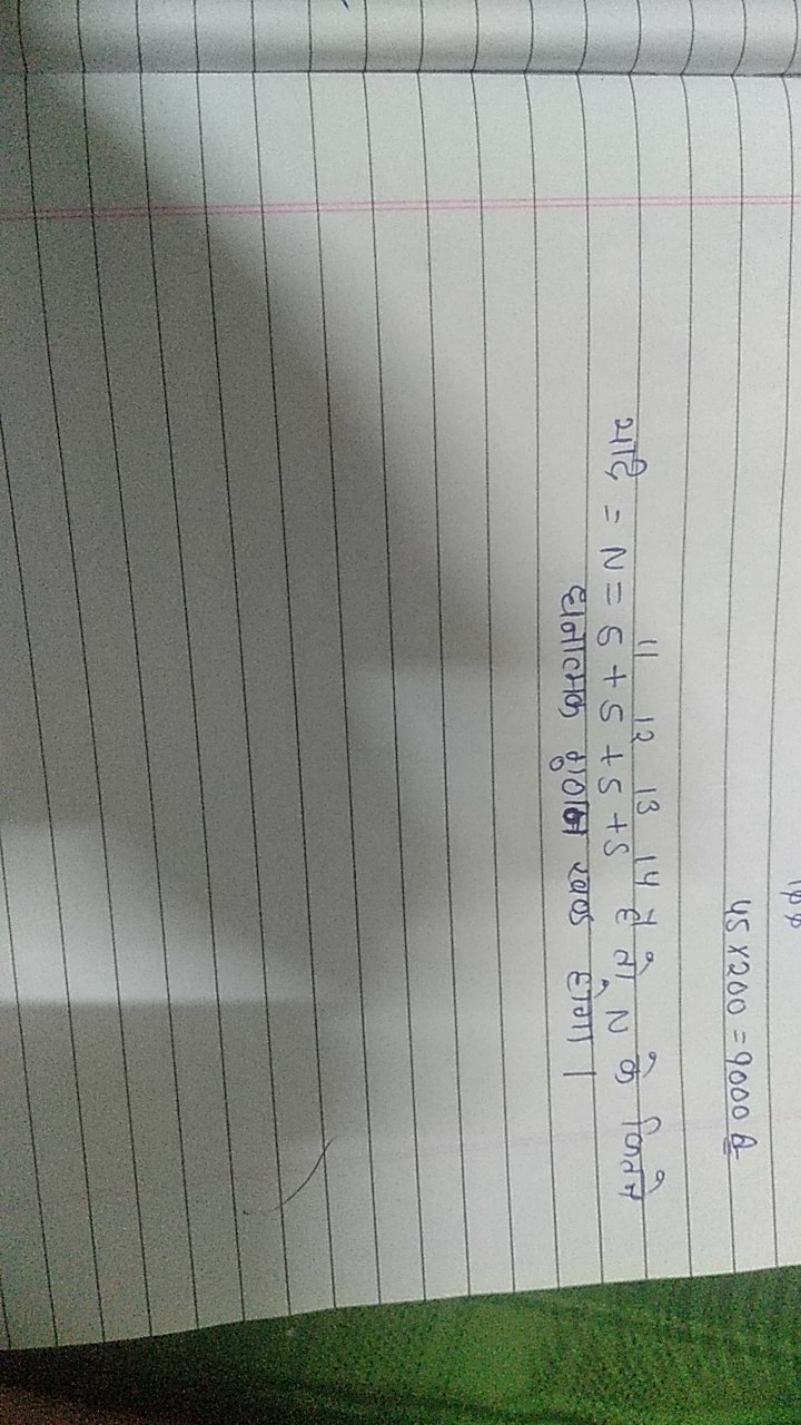 45 x 200 = 9000 B
यदि = N = 5¹¹ + 5¹² + 5¹³ + 5¹⁴ है तो N के कितने
धनात्मक गुणन खण्ड होगा ।